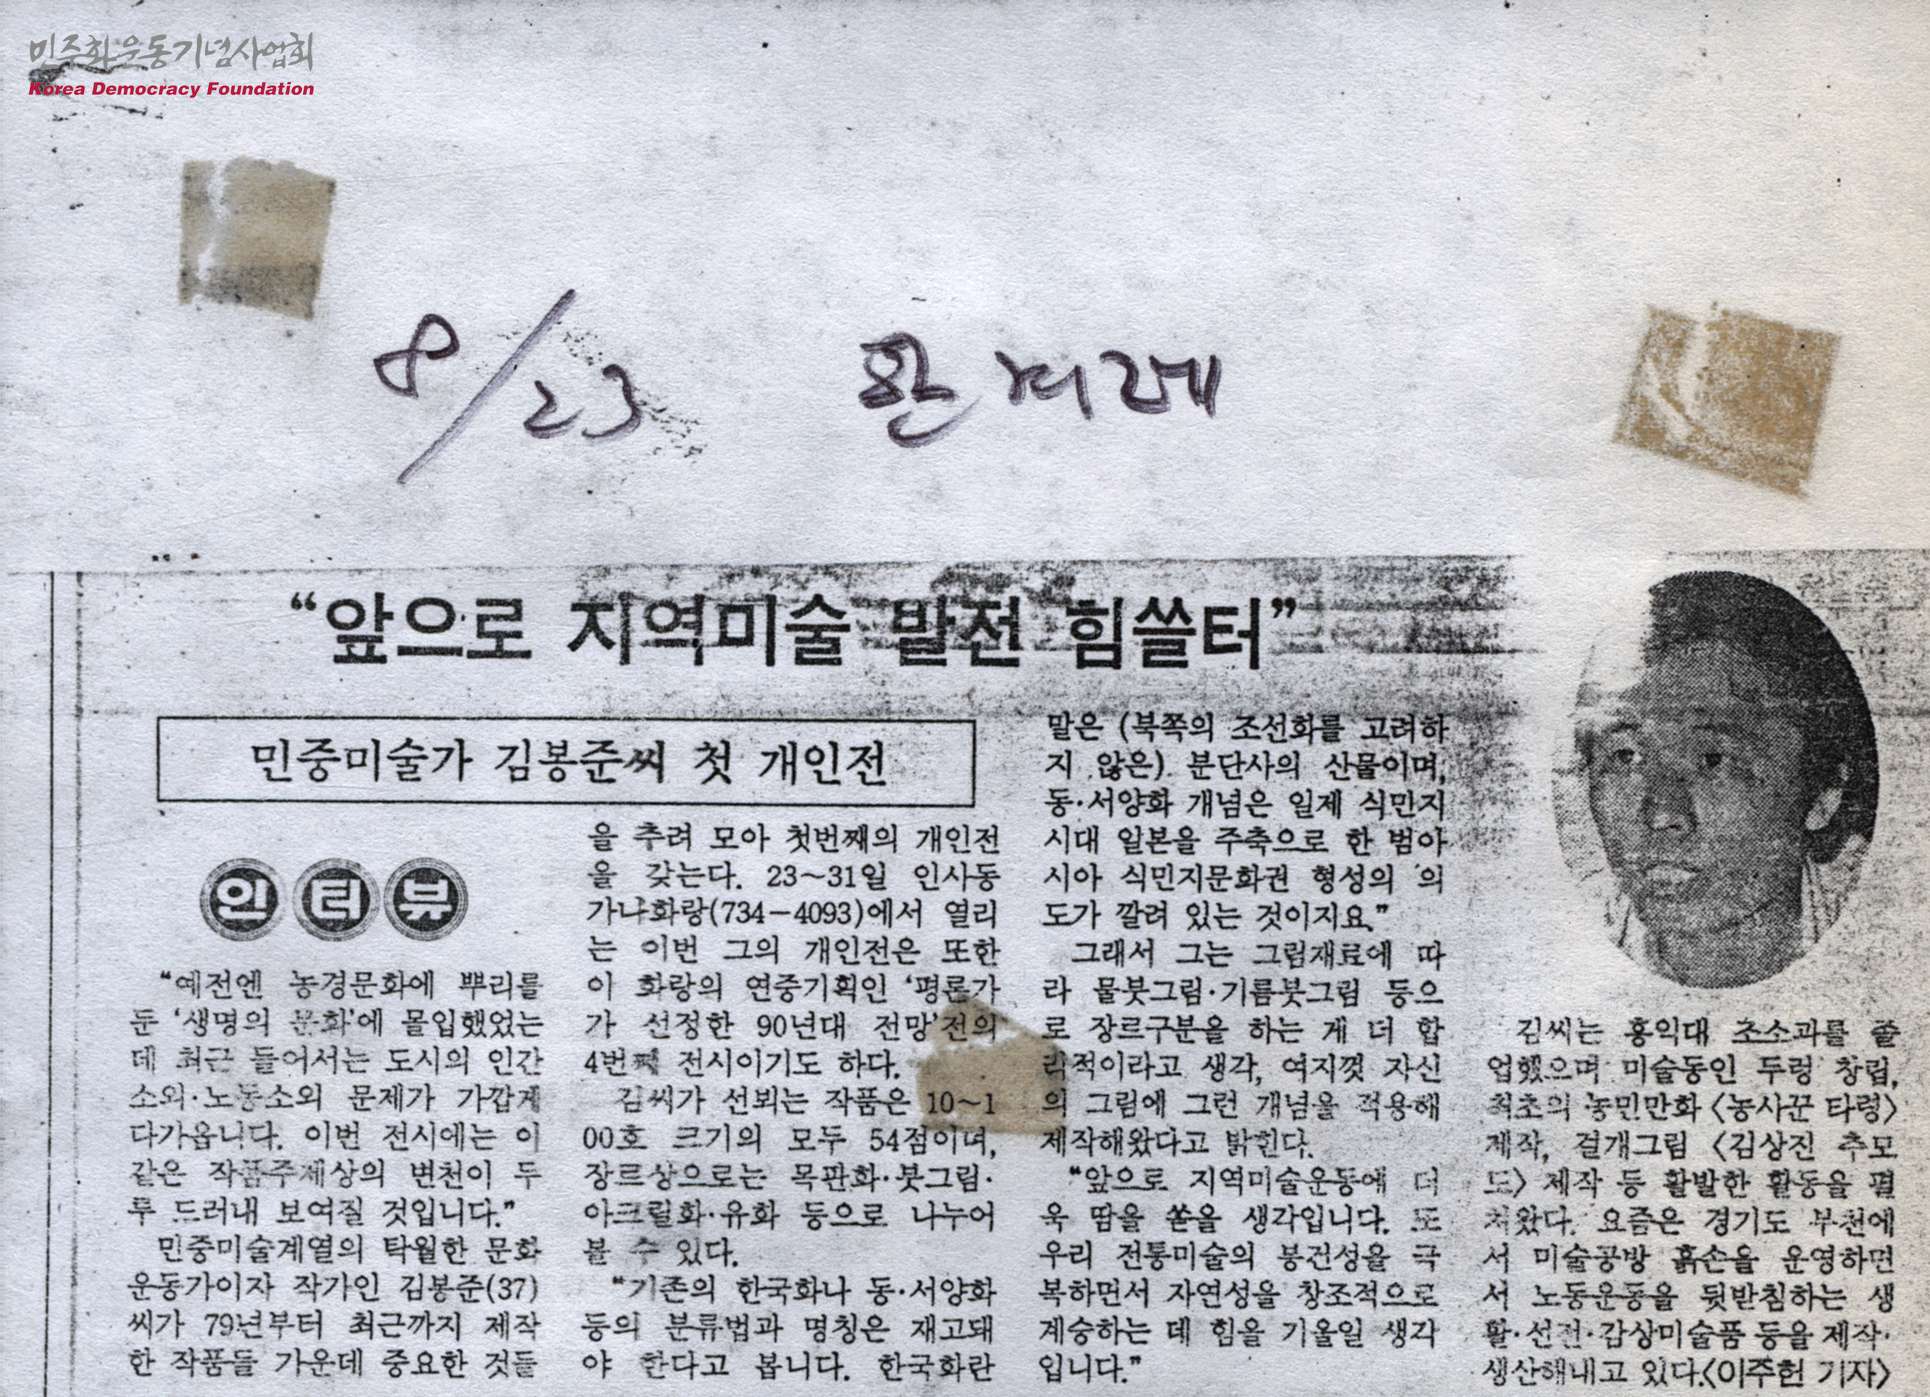 민주화운동기념사업회
Korea Democracy Foundation
8/23 한겨레
“앞으로 지역미술 발전 힘쓸터”
민중미술가 김봉준씨 첫 개인전
인터뷰
“예전엔 농경문화에 뿌리를
둔 ‘생명의 문화’에 몰입했었는
데 최근 들어서는 도시의 인간
소외·노동소외 문제가 가깝게
다가옵니다. 이번 전시에는 이
같은 작품주제상의 변천이 두
루 드러내 보여질 것입니다.”
민중미술계열의 탁월한 문화
운동가이자 작가인 김봉준(37)
씨가 79년부터 최근까지 제작
한 작품들 가운데 중요한 것들
을 추려 모아 첫번째의 개인전
을 갖는다. 23～31일 인사동
가나화랑(734−4093)에서 열리
는 이번 그의 개인전은 또한
이 화랑의 연중기획인 ‘평론가
가 선정한 90년대 전망’전의
4번째 전시이기도 하다.
김씨가 선뵈는 작품은 10～1
00호 크기의 모두 54점이며,
장르상으로는 목판화·붓그림·
아크릴화·유화 등으로 나누어
볼 수 있다.
“기존의 한국화나 동·서양화
등의 분류법과 명칭은 재고돼
야 한다고 봅니다. 한국화란
말은 (북쪽의 조선화를 고려하
지 않은) 분단사의 산물이며,
동·서양화 개념은 일제 식민지
시대 일본을 주축으로 한 범아
시아 식민지문화권 형성의 의
도가 깔려 있는 것이지요.”
그래서 그는 그림재료에 따
라 물붓그림·기름붓그림 등으
로 장르구분을 하는 게 더 합
리적이라고 생각, 여지껏 자신
의 그림에 그런 개념을 적용해
제작해왔다고 밝힌다.
“앞으로 지역미술운동에 더
욱 땀을 쏟을 생각입니다. 또
우리 전통미술의 봉건성을 극
복하면서 자연성을 창조적으로
계승하는 데 힘을 기울일 생각
입니다.”
김씨는 홍익대 조소과를 졸
업했으며 미술동인 두렁 창립,
최초의 농민만화 〈농사꾼 타령〉
제작, 걸개그림 〈김상진 추모
도〉 제작 등 활발한 활동을 펼
쳐왔다. 요즘은 경기도 부천에
서 미술공방 흙손을 운영하면
서 노동운동을 뒷받침하는 생
활·선전·감상미술품 등을 제작·
생산해내고 있다.〈이주헌 기자〉